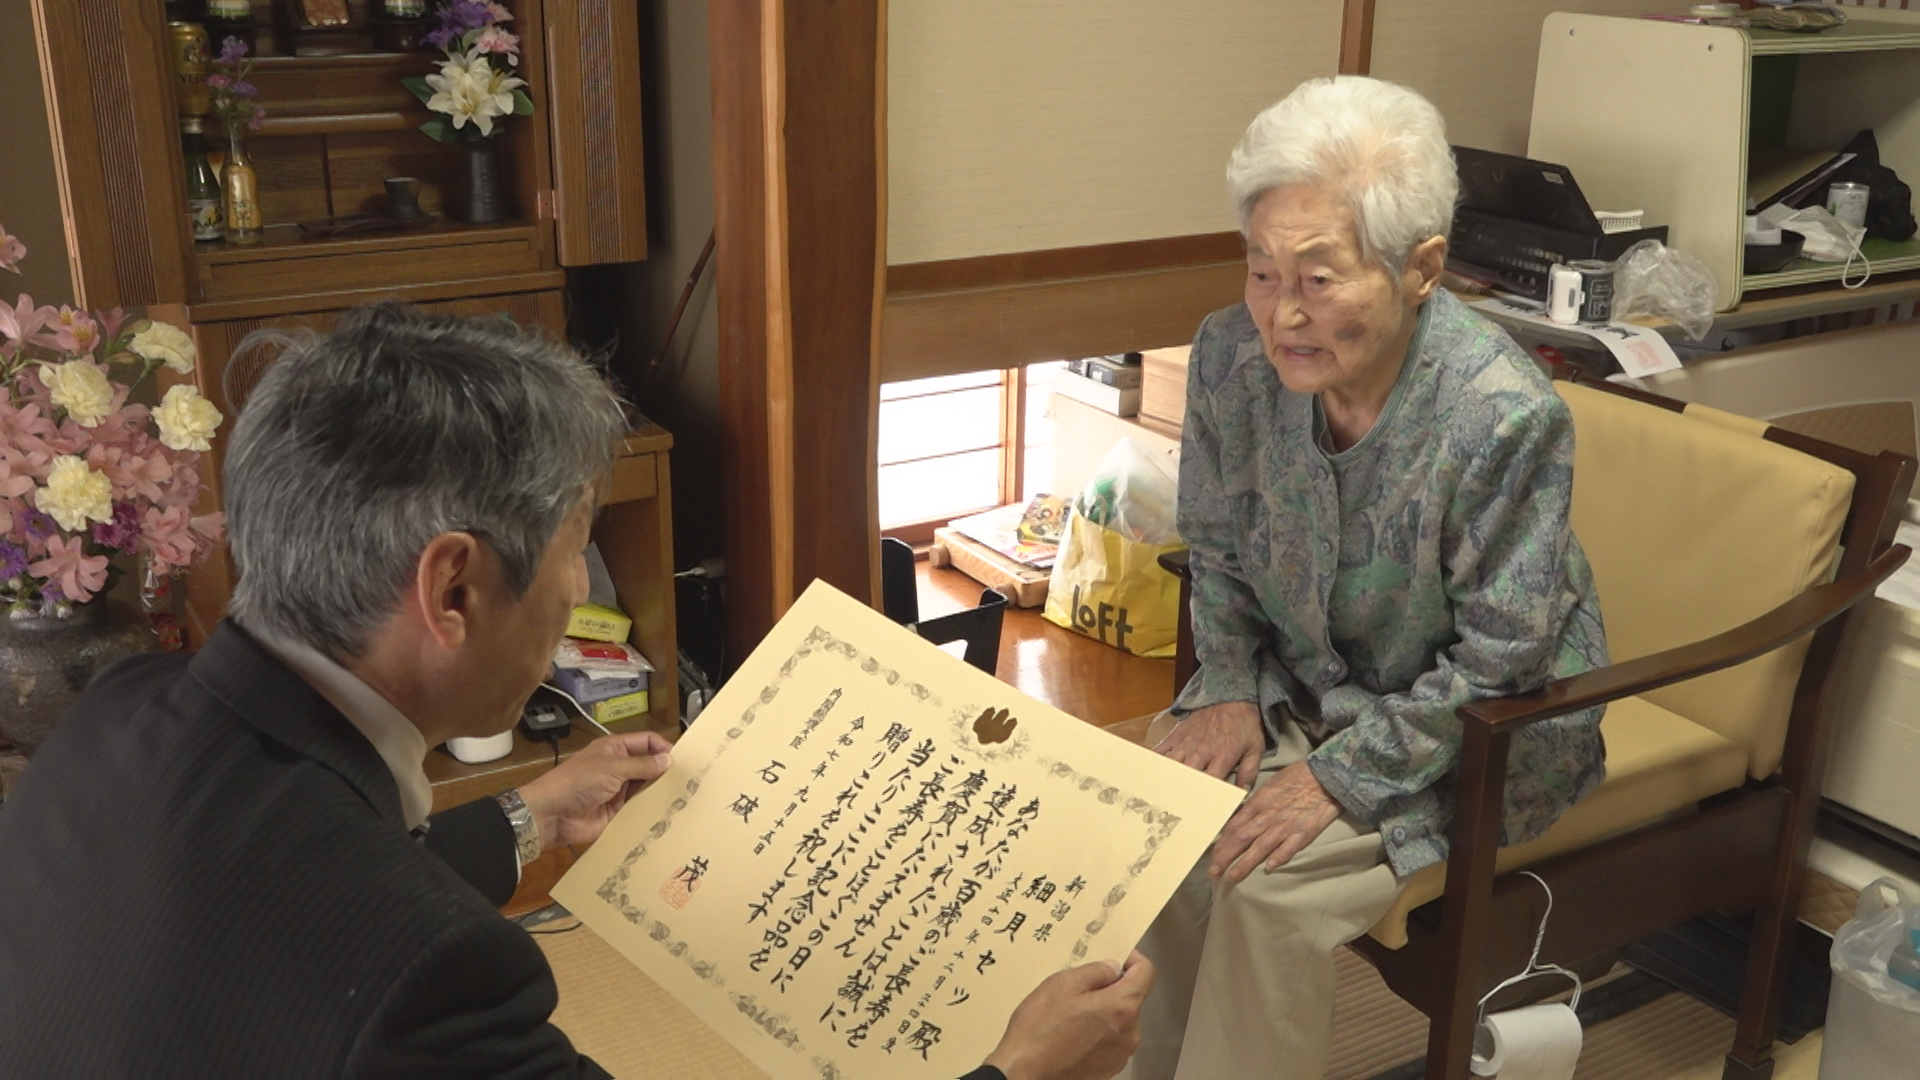 新潟県
細貝セツ殿
大正十四年十二月二十四日生
あなたが百歳のご長寿を
達成されたことは誠に
慶賀にたえません
ご長寿をことほぎこの日に
当たりここに記念品を
贈りこれを祝します
令和七年九月十五日
内閣総理大臣 石破 茂
LOFT